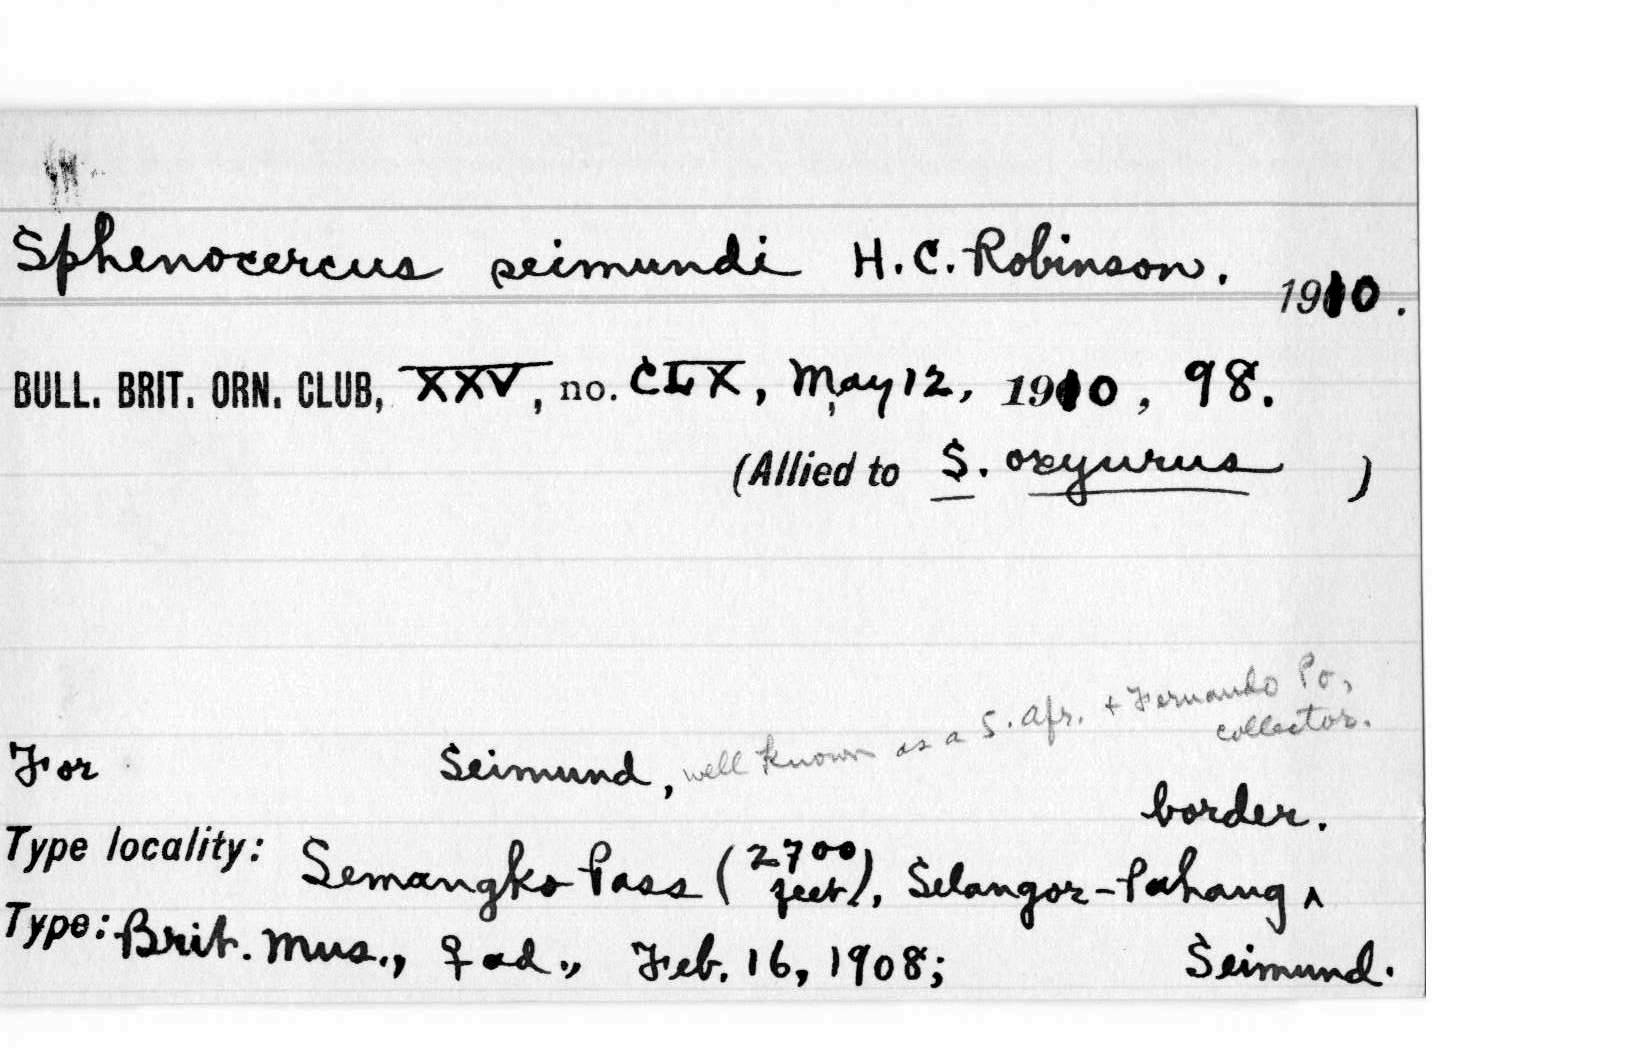 Sphenocercus seimundi H. C. Robinson. 1910.
BULL. BRIT. ORN. CLUB, XXV, no. CLX, May 12, 1910, 98.
(Allied to S. oxyurus )
For Seimund, well known as a S. Afr. + Fernando Po,
collector.
border.
Type locality: Semangko Pass (2700 feet), Selangor-Pahang ^
Type: Brit. Mus., ♀ ad., Feb. 16, 1908; Seimund.